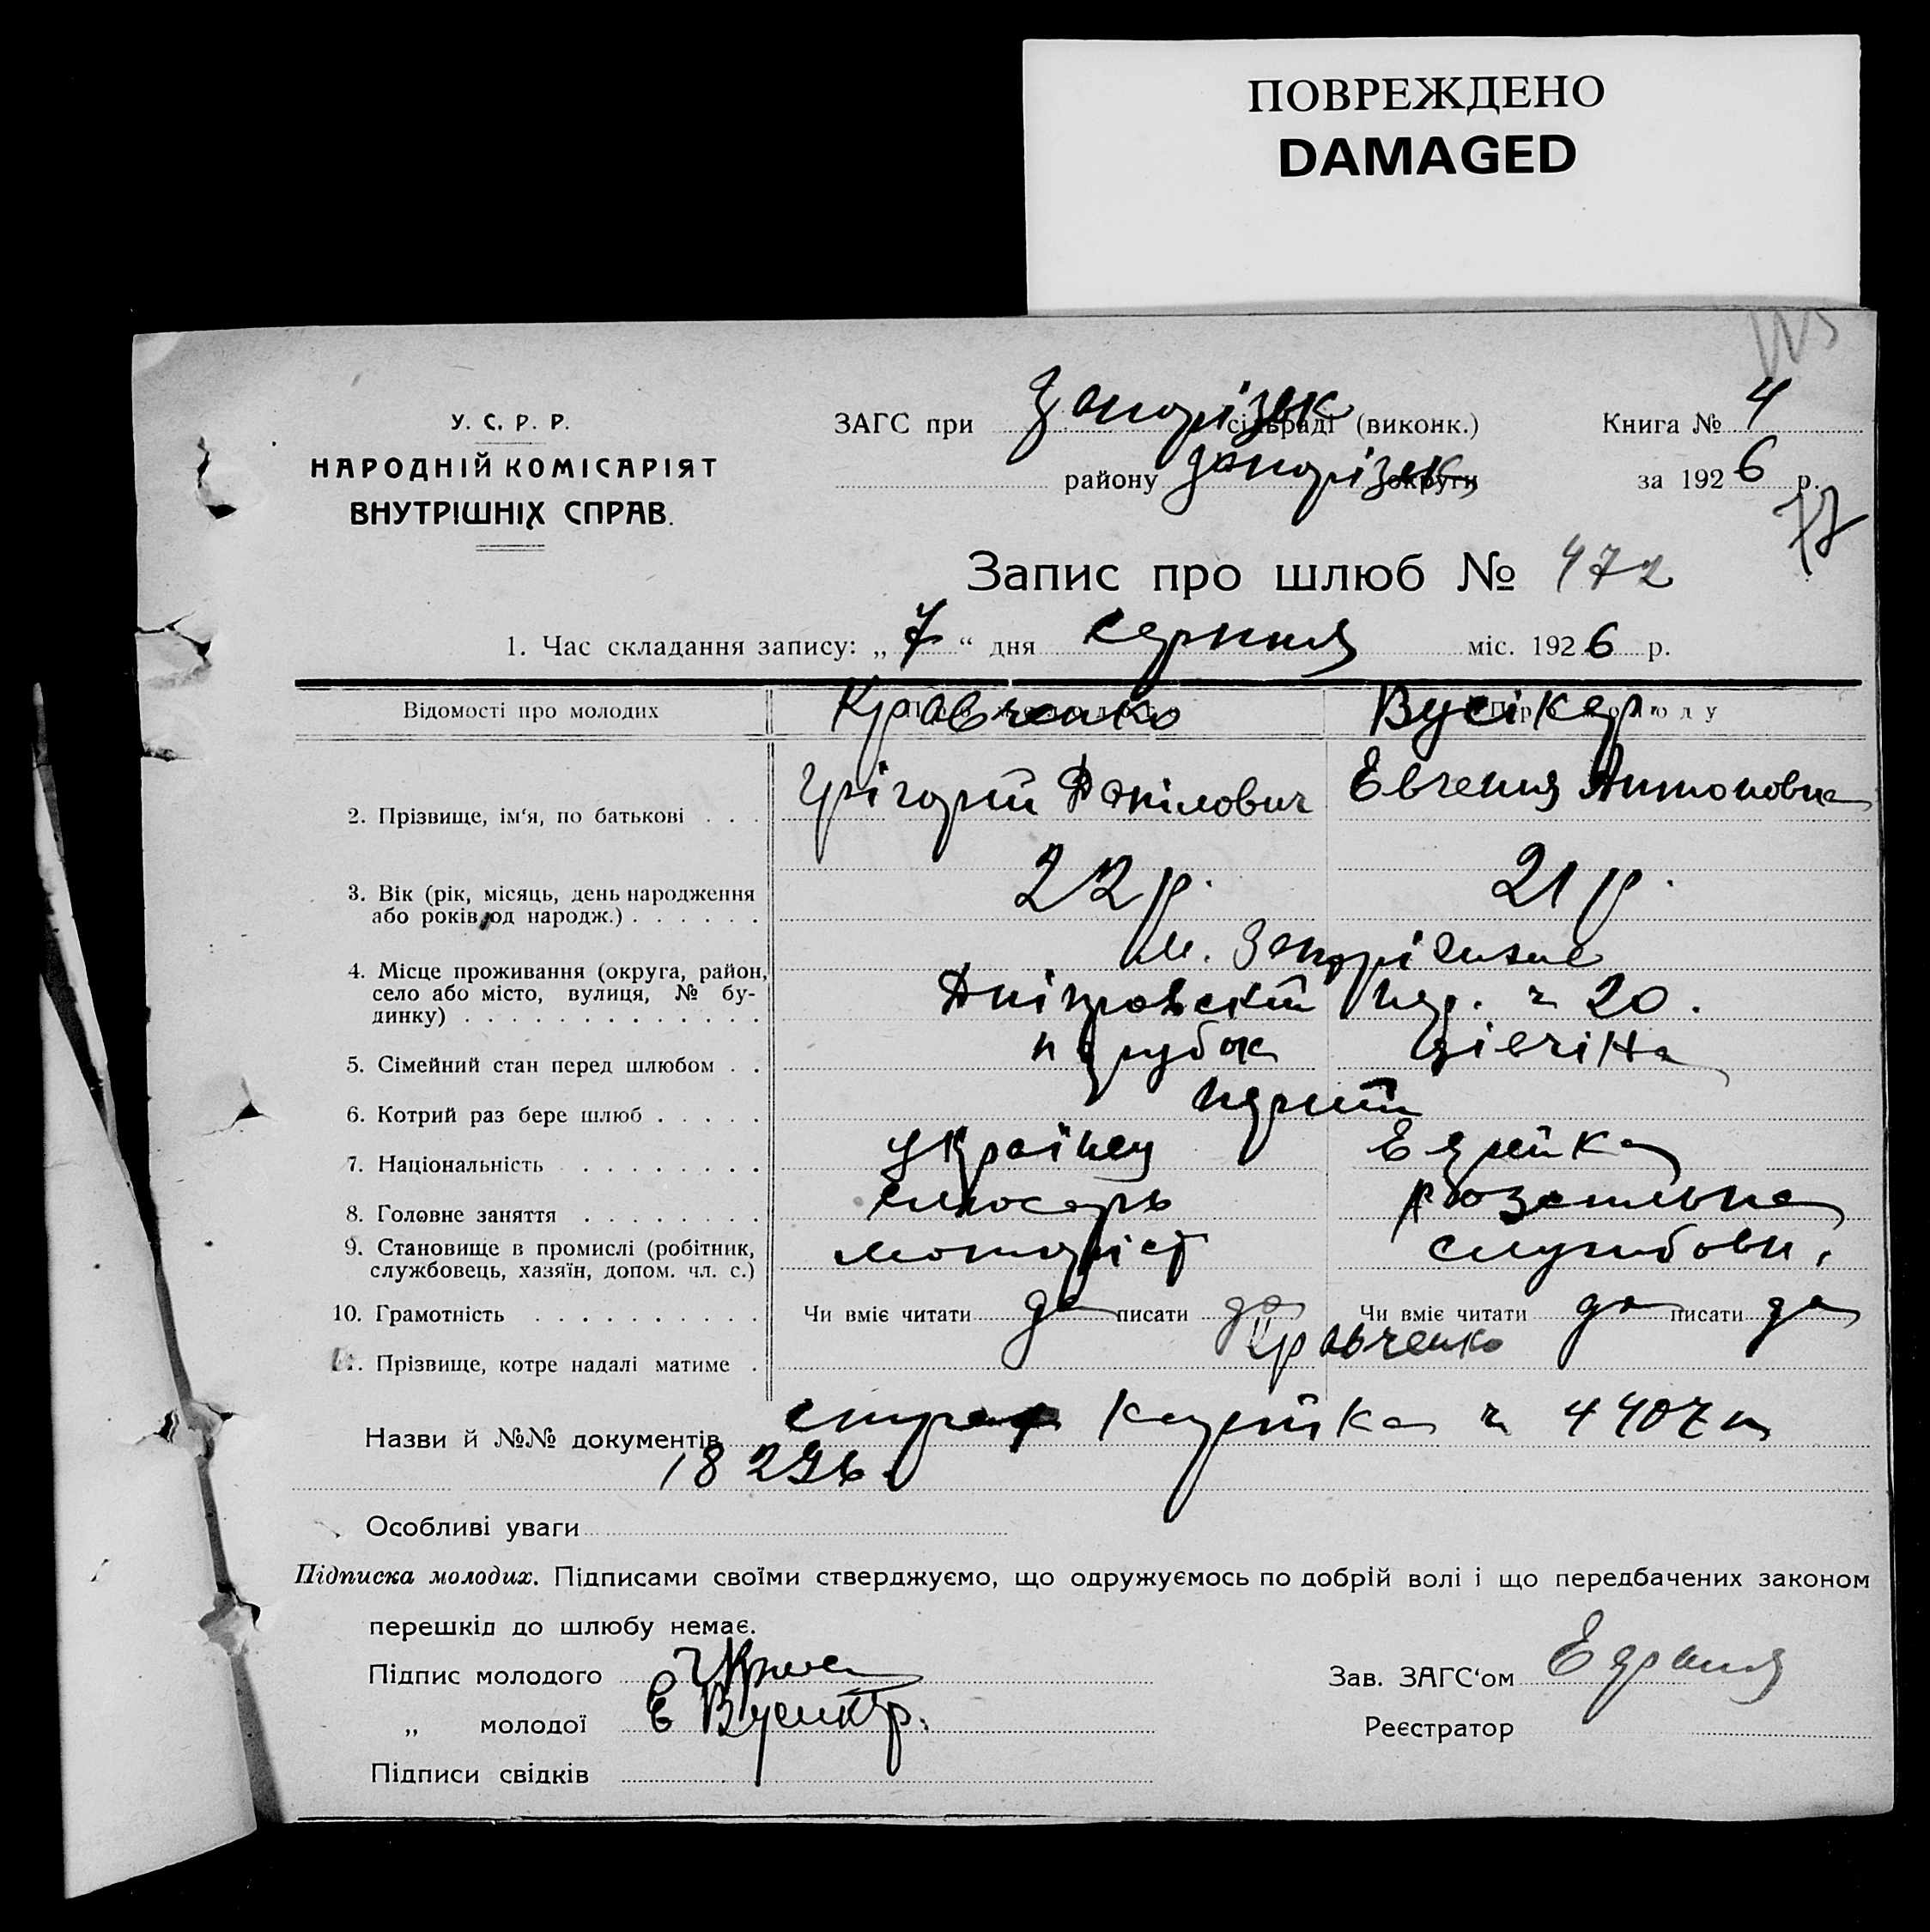 ПОВРЕЖДЕНО
DAMAGED
У. С. Р. Р.
НАРОДНІЙ КОМІСАРІЯТ
ВНУТРІШНІХ СПРАВ.
ЗАГС при Запоріжск сільраді (виконк.) Книга № 4
району Запоріжск округи за 1926 р.
77
Запис про шлюб № 472
1. Час складання запису: „7“ дня серпня міс. 1926 р.
Відомості про молодих Кравченко Вусікер
2. Прізвище, ім‘я, по батькові . . . Григорій Данілович Евгения Антоновна
3. Вік (рік, місяць, день народження 22 р. 21 р.
або років од народж.) . . . . . .
м. Запоріжжя
4. Місце проживання (округа, район, село або місто, вулиця, № бу-
динку) . . . . . . . . . . . . . Дніпровскій пер. № 20.
5. Сімейний стан перед шлюбом . . парубок дівчіна
6. Котрий раз бере шлюб . . . . . перший
7. Національність . . . . . . . . українец Еврейка
8. Головне заняття . . . . . . . . слюсарь
9. Становище в промислі (робітник, службовець, хазяїн, допом. чл. с.) службовк.
10. Грамотність . . . . . . . . . . Чи вміє читати да писати да Чи вміє читати да писати да
11. Прізвище, котре надалі матиме . Кравченко
Назви й №№ документів страх карточка № 4407 и
18296.
Особливі уваги
Підписка молодих. Підписами своїми стверджуємо, що одружуємось по добрій волі і що передбачених законом
перешкід до шлюбу немає.
Підпис молодого
Зав. ЗАГС‘ом
„ молодої Е Вусикер.
Реєстратор
Підписи свідків